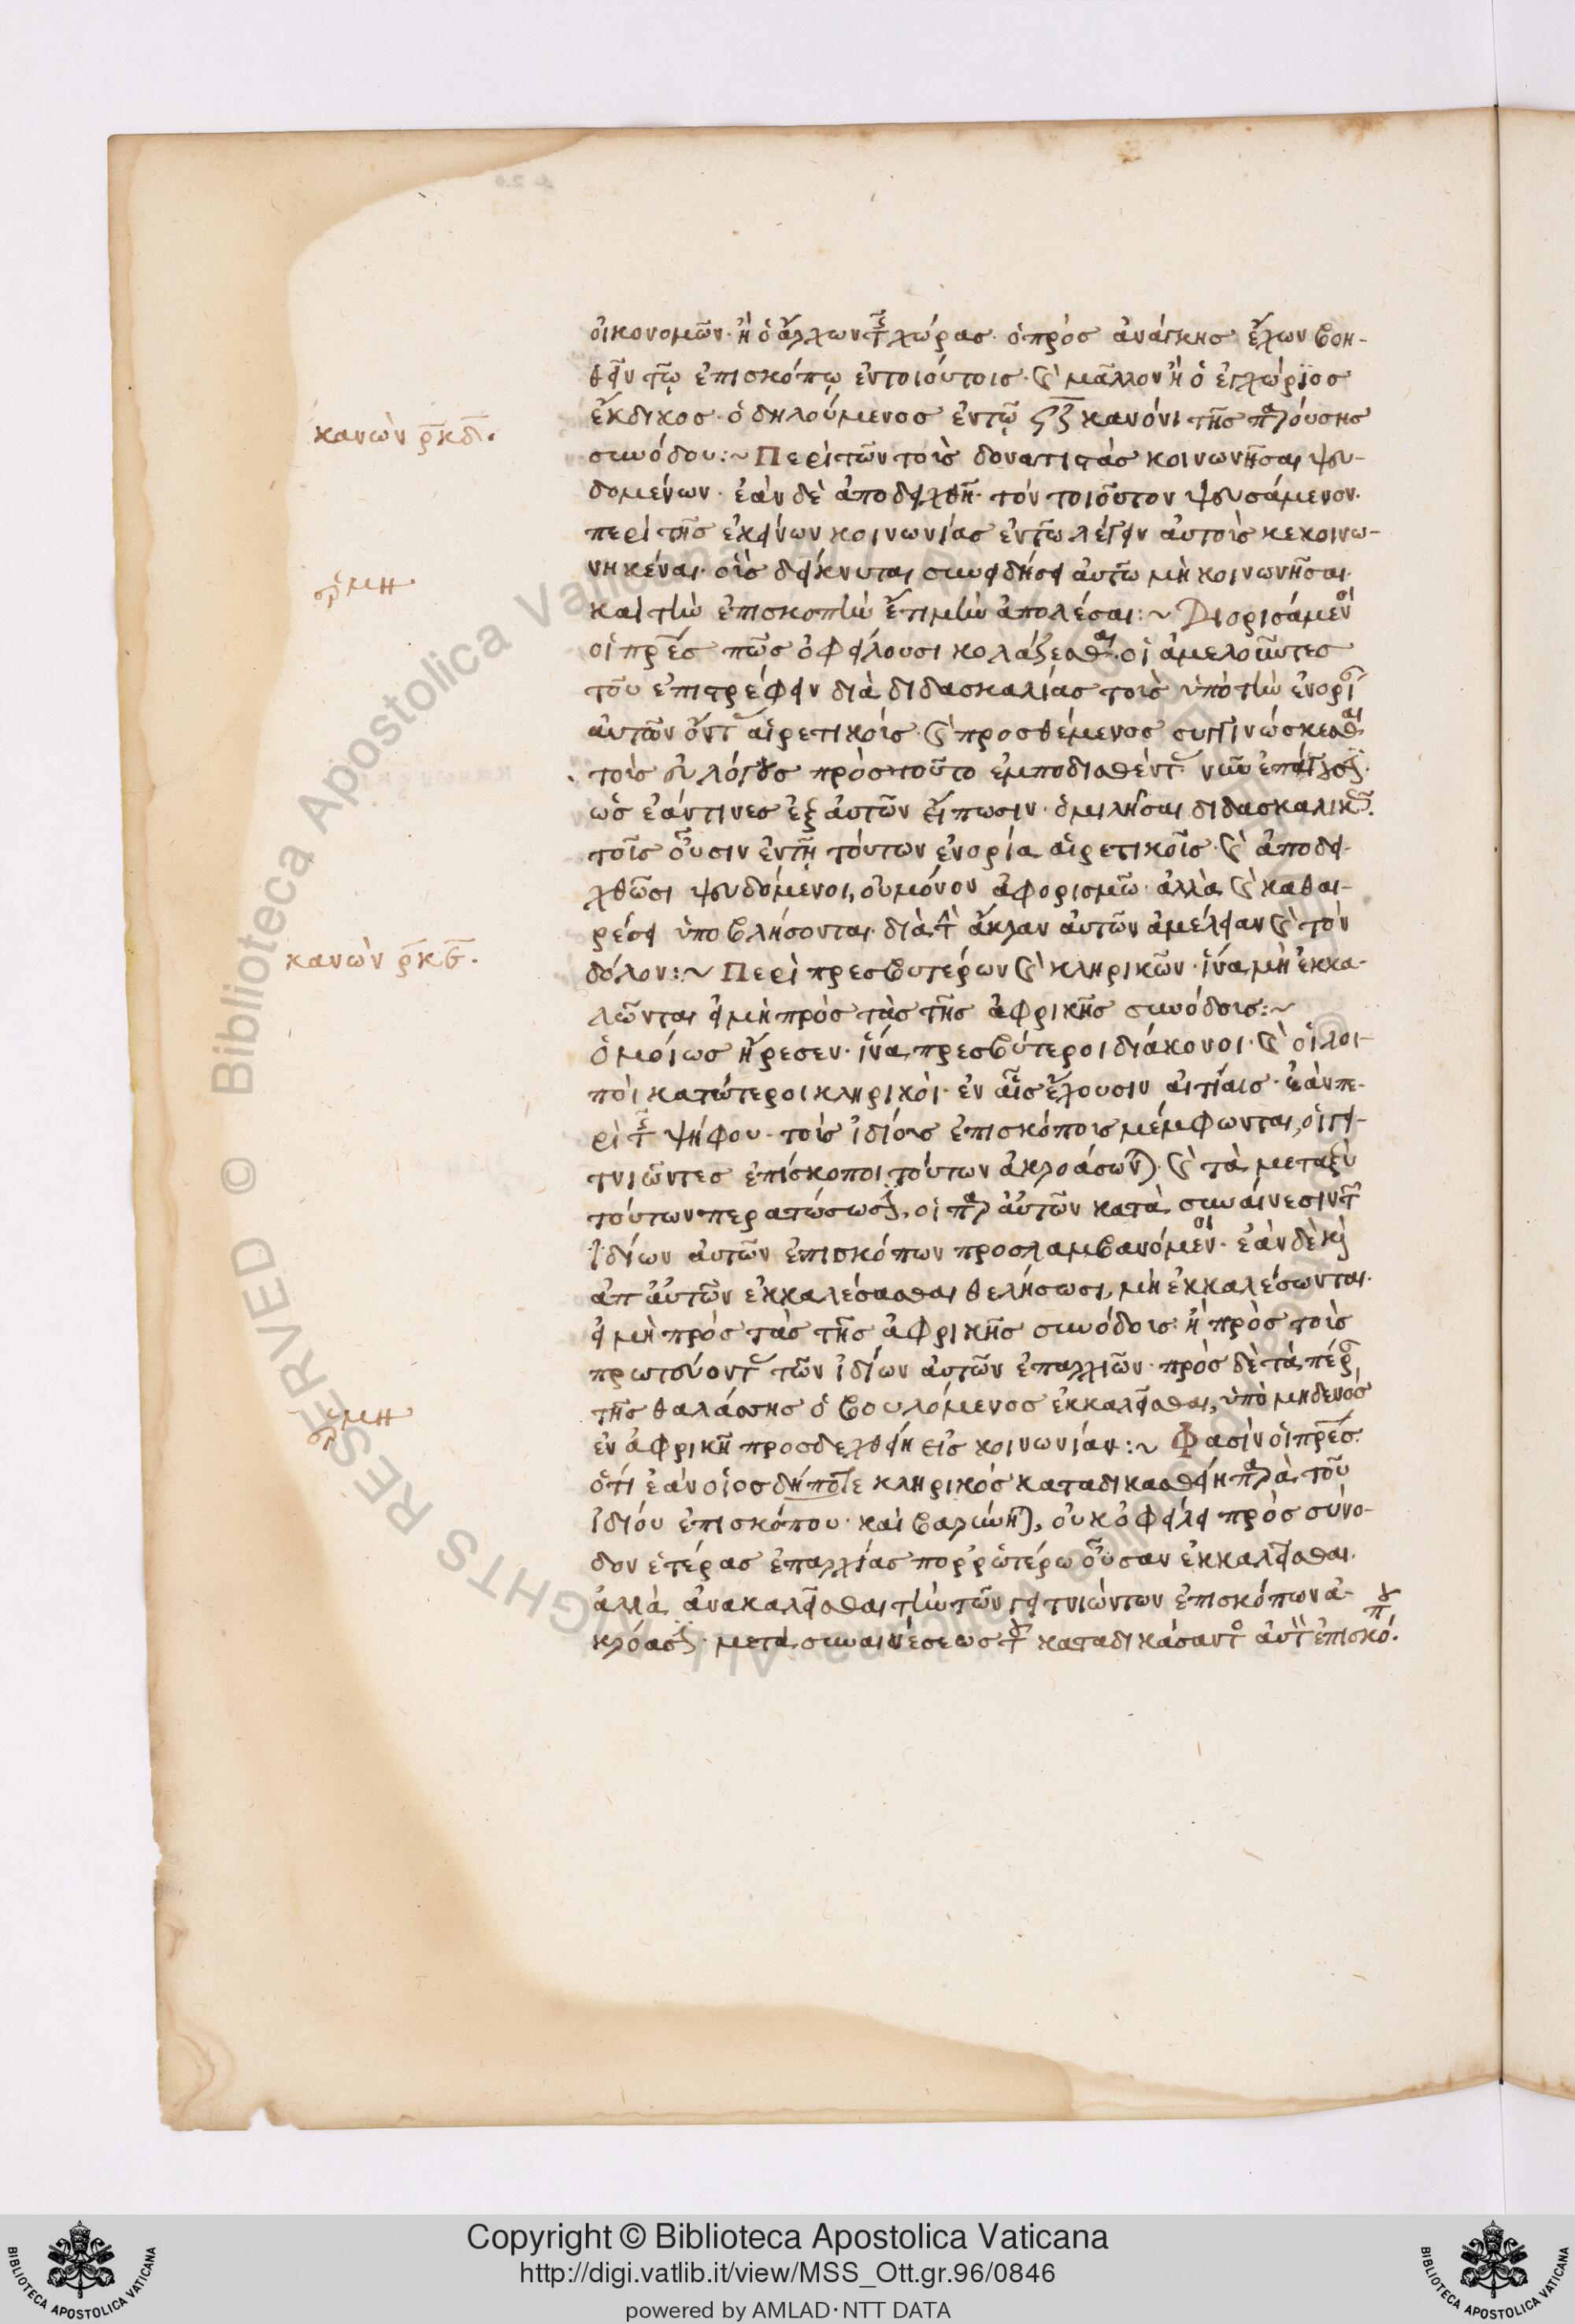 οἰκονομῶν· ἢ ὁ ἄρχων τῆς χώρας· ὁ πρὸς ἀνάγκης ἔχων βοη-
θεῖν τῷ ἐπισκόπῳ ἐν τοιούτοις· καὶ μᾶλλον ἢ ὁ ἐγχώριος
ἔκδικος· ὁ δηλούμενος ἐν τῷ κανόνι τῆς παρούσης
κανὼν ρκδ.
συνόδου:~ Περὶ τῶν τοὺς δονατιστὰς κοινωνῆσαι ψευ-
δομένων· ἐὰν δὲ ἀποδειχθῇ· τὸν τοιοῦτον ψευσάμενον·
περὶ τῆς ἐκείνων κοινωνίας ἐν τῷ λέγειν αὐτοὺς κεκοινω-
νηκέναι· οὓς δείκνυται συνειδήσει αὐτῶ μὴ κοινωνῆσαι·
καὶ τὴν ἐπισκοπὴν ἔτι μὴν ἀπολέσαι:~ Διορισάμενοι
οἱ πρες πῶς ὀφείλουσι κολάζεσθαι· οἱ ἀμελοῦντες
τοῦ ἐπιτρέφειν διὰ διδασκαλίας τοὺς ὑπὸ τὴν ἐνορί
αὐτῶν ὄντας αἱρετικούς· καὶ προσθέμενος συγγινώσκεσθαι
τοῖς εὐλόγως πρὸς τοῦτο ἐμποδισθεῖντ νῦν ἐπάγουσι·
ὡς ἐάν τινες ἐξ αὐτῶν εἴπωσιν· ὁμιλῆσαι διδασκαλικῶς
τοῖς οὖσιν ἐν τῇ τούτων ἐνορία αἱρετικοῖς· καὶ ἀποδει-
χθῶσι ψευδόμενοι, οὐ μόνον ἀφορισμῶ· ἀλλὰ καὶ καθαι-
ρέσει ὑποβλήσονται· διὰ τὴν ἄκραν αὐτῶν ἀμέλειαν καὶ τὸν
κανὼν ρκϛ.
δόλον:~ Περὶ πρεσβυτέρων καὶ κληρικῶν· ἵνα μὴ ἐκκα-
λῶνται εἰ μὴ πρὸς τὰς τῆς ἀφρικῆς συνόδους:~
ὁμοίως ἤρεσεν· ἵνα πρεσβύτεροι διάκονοι· καὶ οἱ λοι-
ποὶ κατώτεροι κληρικοὶ· ἐν αἷς ἔχουσιν αἰτίαις· ἐὰν πε-
ρὶ τῆς ψήφου· τοὺς ἰδίους ἐπισκόπους μέμφωνται, οἱ γει-
τνιῶντες ἐπίσκοποι τούτων ἀκροάσωνται· καὶ τὰ μεταξὺ
τούτων περατώσωσιν, οἱ παρ' αὐτῶν κατὰ συναίνεσιν τῶν
ἰδίων αὐτῶν ἐπισκόπων προσλαμβανόμενοι· ἐὰν δὲ καὶ
ἀπ' αὐτῶν ἐκκαλέσασθαι θελήσωσι, μὴ ἐκκαλέσωνται·
εἰ μὴ πρὸς τὰς τῆς ἀφρικῆς συνόδους· ἢ πρὸς τοὺς
πρωτεύοντας τῶν ἰδίων αὐτῶν ἐπαρχιῶν· πρὸς δὲ τὰ πέρα
τῆς θαλάσσης ὁ βουλόμενος ἐκκαλεῖσθαι, ὑπὸ μηδενὸς
ἐν ἀφρικῇ προσδεχθείη εἰς κοινωνίαν:~ Φασὶν οἱ πρες
ὅτι ἐὰν οἱοσδήποτε κληρικὸς καταδικασθείη παρὰ τοῦ
ἰδίου ἐπισκόπου· καὶ βαρύνηται, οὐκ ὀφείλει πρὸς σύνο-
δον ἑτέρας ἐπαρχίας πορρωτέρω οὖσαν ἐκκαλεῖσθαι·
ἀλλὰ ἀνακαλεῖσθαι τὴν τῶν γειτνιώντων ἐπισκόπων ἀ-
κρόασιν· μετὰ συναινέσεως τοῦ καταδικάσαντος αὐτὸν ἐπισκόπου.